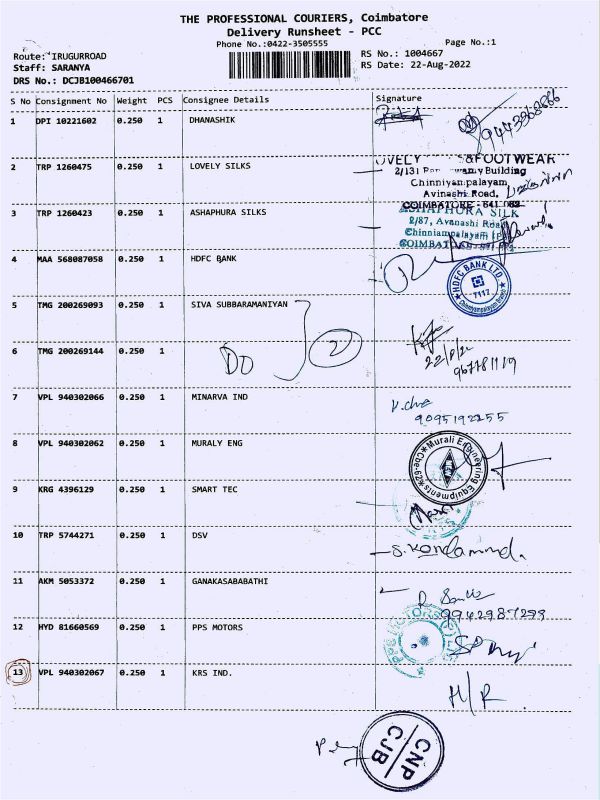 THE PROFESSIONAL COURIERS, Coimbatore
Delivery Runsheet - PCC
Phone No.:0422-3505555
Page No.:1
Route: IRUGURROAD
Staff: SARANYA
DRS No.: DCJB100466701
RS No.: 1004667
RS Date: 22-Aug-2022
S No Consignment No Weight PCS Consignee Details Signature
1 DPI 10221602 0.250 1 DHANASHIK
2 TRP 1260475 0.250 1 LOVELY SILKS
OVELY S&FOOTWEAR
2/131
Building
Chinniyampalayam,
Avinashi Road,
COIMBATORE - 641 062
3 TRP 1260423 0.250 1 ASHAPHURA SILKS
ASHAPHURA SILK
2/87, Avanashi Road
Chinniampalayam
COIMBATORE
4 MAA 568087058 0.250 1 HDFC BANK
HDFC BANK LTD.
7117
5 TMG 200269093 0.250 1 SIVA SUBBARAMANIYAN
2
6 TMG 200269144 0.250 1
DO
22/8/22
7 VPL 940302066 0.250 1 MINARVA IND
9095192255
8 VPL 940302062 0.250 1 MURALY ENG
Murali Engineering Equipments Cbe-62
9 KRG 4396129 0.250 1 SMART TEC
10 TRP 5744271 0.250 1 DSV
11 AKM 5053372 0.250 1 GANAKASABABATHI
12 HYD 81660569 0.250 1 PPS MOTORS
PPS MOTORS
13 VPL 940302067 0.250 1 KRS IND.
H/R
CNP
CJB